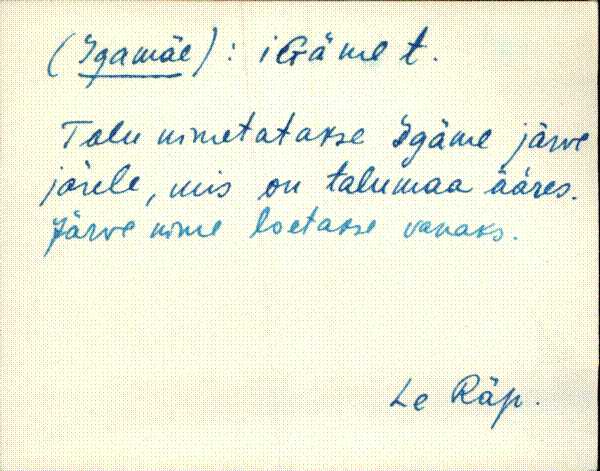 (Igamäe): iGäme t.
Talu nimetatakse Igäme järve
järele, mis on talumaa ääres.
Järve nime loetakse vanaks.
Le Räp.